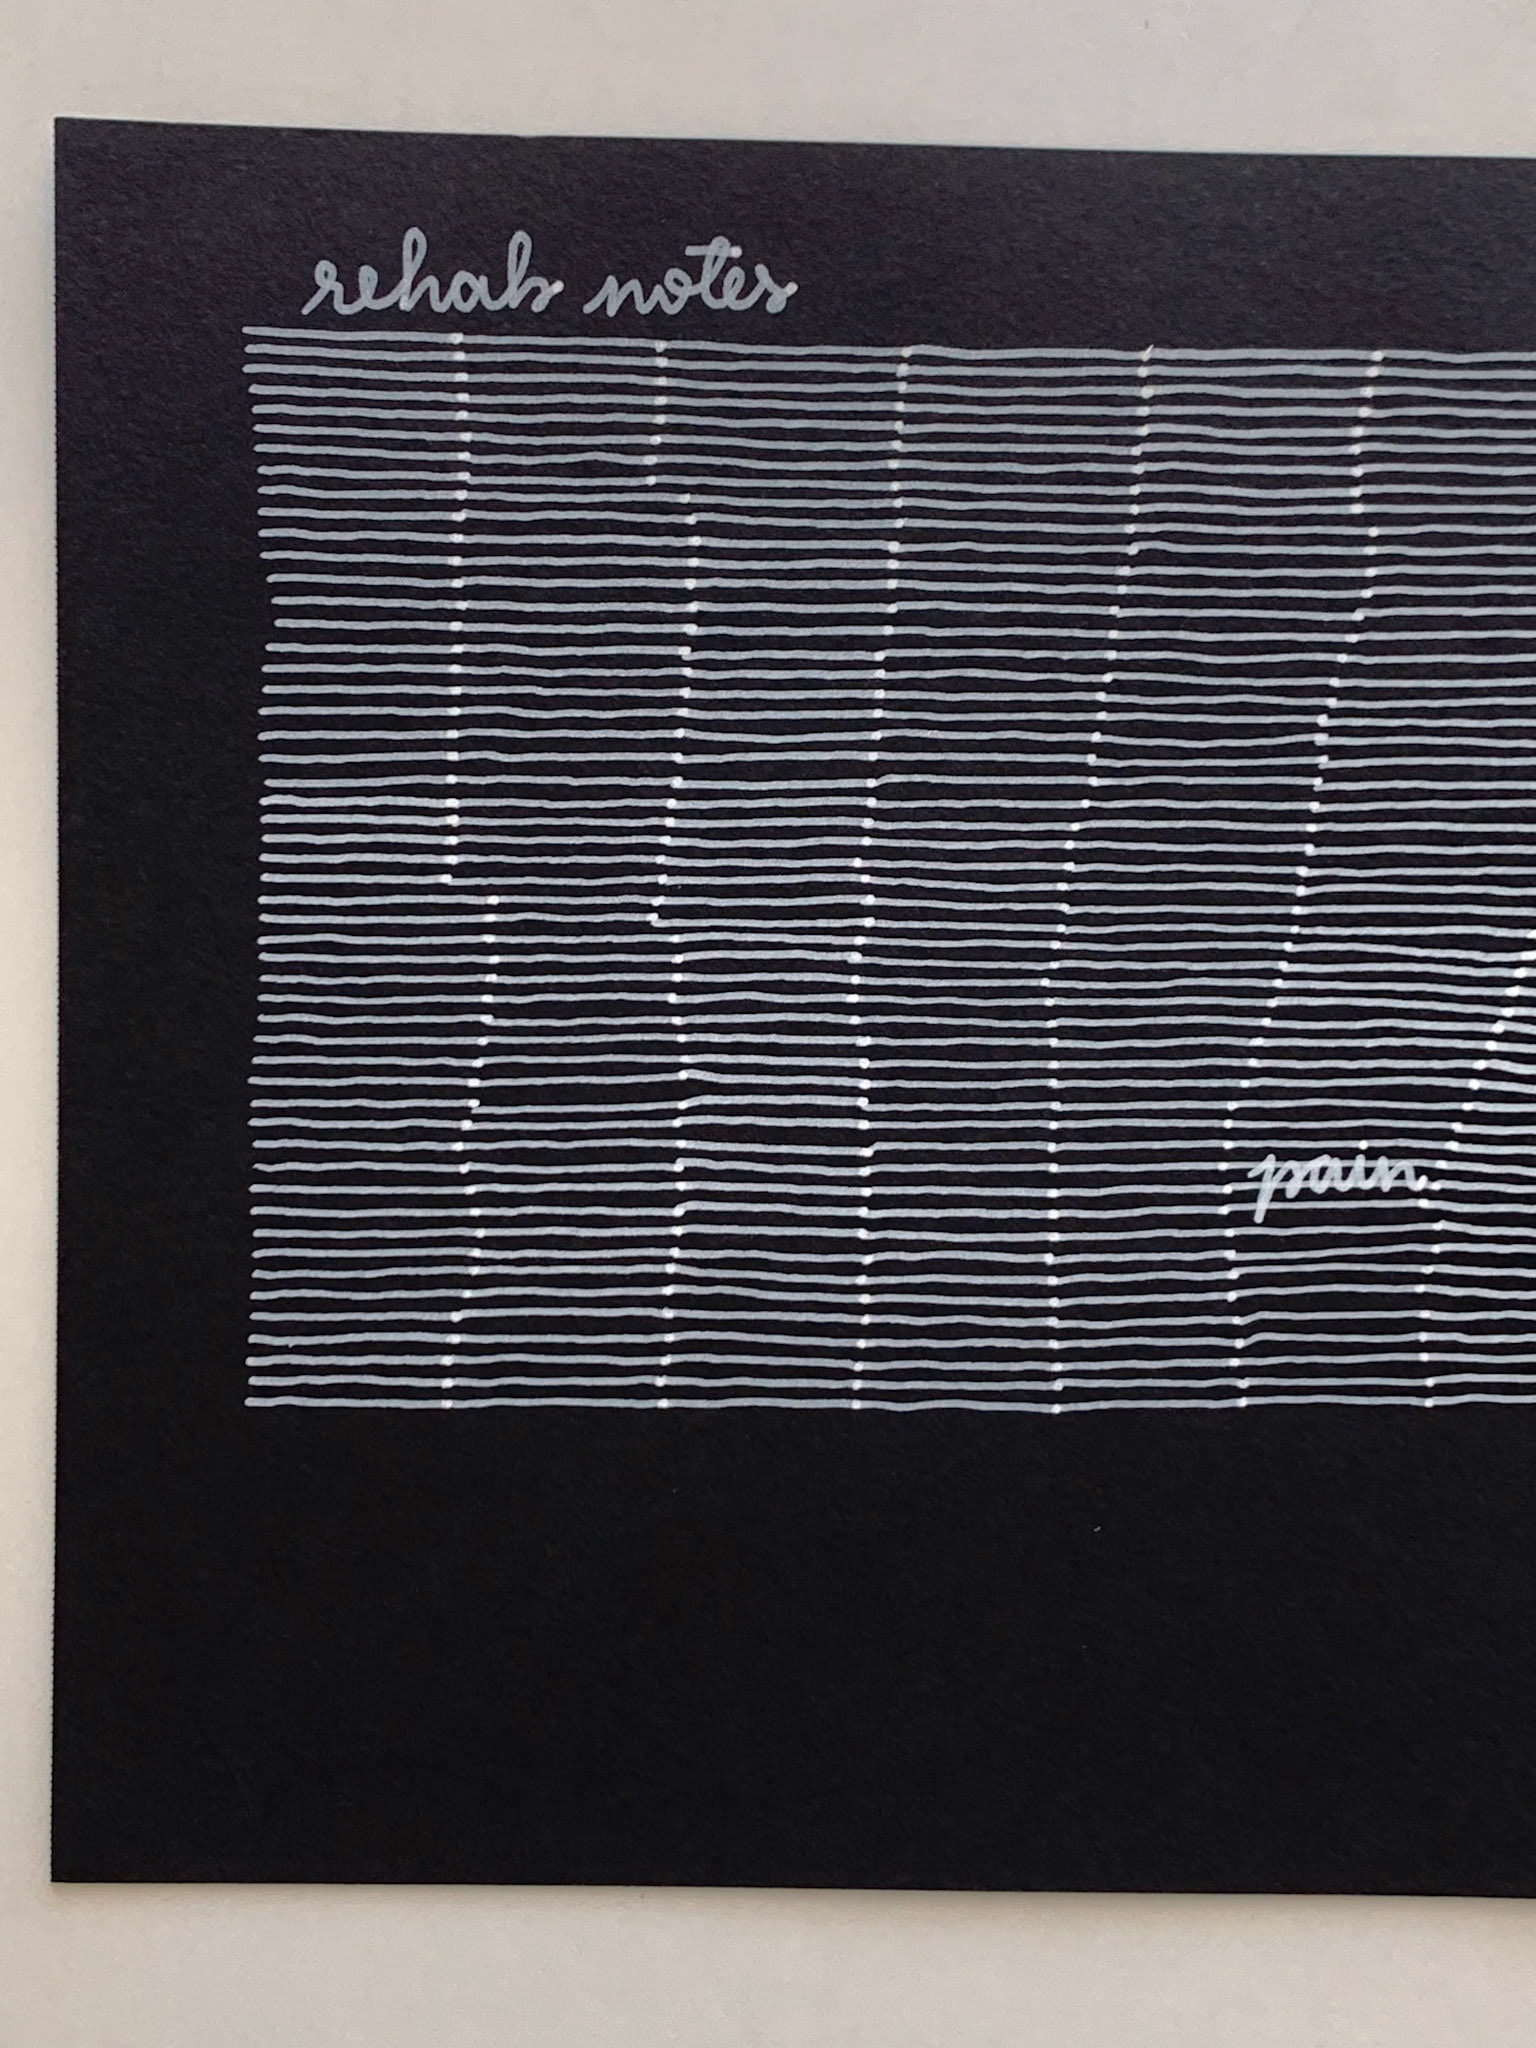 rehab notes
pain